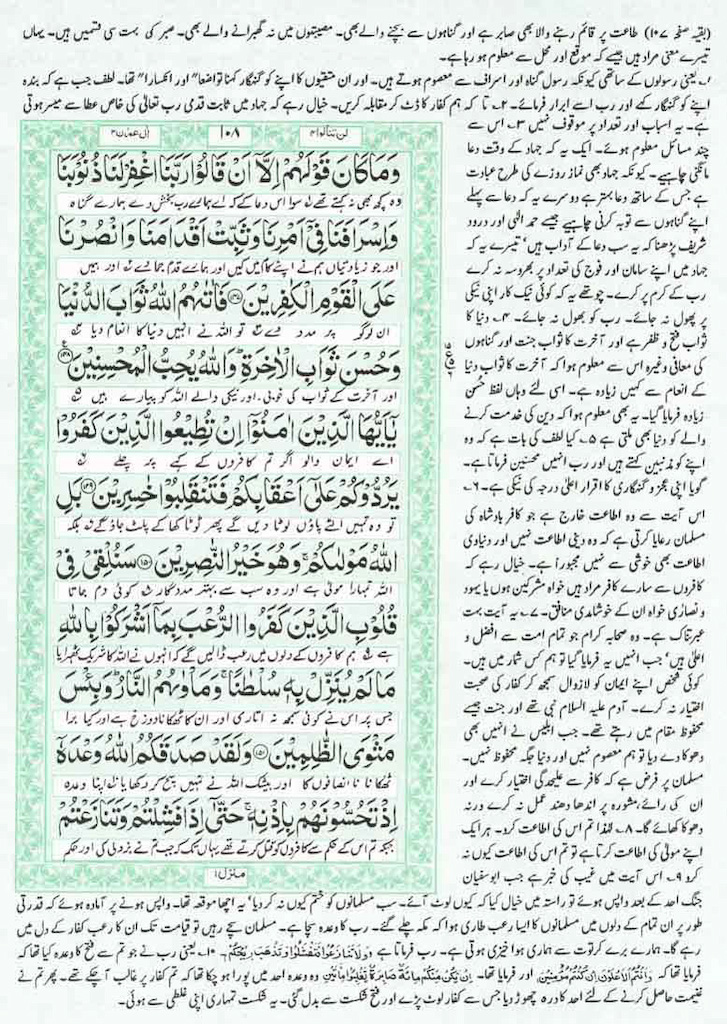 (بقیہ صفحہ ۱۰۷) طاعت پر قائم رہنے والا بھی صابر ہے اور گناہوں سے بچنے والے بھی۔ مصیبتوں میں نہ گھبرانے والے بھی۔ صبر کی بہت سی قسمیں ہیں۔ یہاں
تیسرے معنی مراد ہیں جیسے کہ موقع اور محل سے معلوم ہو رہا ہے۔
۱۔ یعنی رسولوں کے ساتھی کیونکہ رسول گناہ اور اسراف سے معصوم ہوتے ہیں۔ اور ان متقیوں کا اپنے کو گنہگار کہنا تواضعا" اور انکسارا" تھا۔ لطف جب ہے کہ بندہ
اپنے کو گنہگار کہے اور رب اسے ابرار فرمائے۔ ۲۔ تا کہ ہم کفار کا ڈٹ کر مقابلہ کریں۔ خیال رہے کہ جہاد میں ثابت قدمی رب تعالٰی کی خاص عطا سے میسر ہوتی
ہے۔ یہ اسباب اور تعداد پر موقوف نہیں ۳۔ اس سے
چند مسائل معلوم ہوئے۔ ایک یہ کہ جہاد کے وقت دعا
مانگنی چاہیے۔ کیونکہ جہاد بھی نماز روزے کی طرح عبادت
ہے جس کے ساتھ دعا بہتر ہے دوسرے یہ کہ دعا سے پہلے
اپنے گناہوں سے توبہ کرنی چاہیے جیسے حمد الٰہی اور درود
شریف پڑھنا کہ یہ سب دعا کے آداب ہیں' تیسرے یہ کہ
جہاد میں اپنے سامان اور فوج کی تعداد پر بھروسہ نہ کرے
رب کے کرم پر کرے۔ چوتھے یہ کہ کوئی نیک کار اپنی نیکی
پر پھول نہ جائے۔ رب کو بھول نہ جائے۔ ۴۔ دنیا کا
ثواب فتح و ظفر ہے اور آخرت کا ثواب جنت اور گناہوں
کی معافی وغیرہ اس سے معلوم ہوا کہ آخرت کا ثواب دنیا
کے انعام سے کہیں زیادہ ہے۔ اسی لئے وہاں لفظ حُسن
زیادہ فرمایا گیا۔ یہ بھی معلوم ہوا کہ دین کی خدمت کرنے
والے کو دنیا بھی ملتی ہے ۵۔ کیا لطف کی بات ہے کہ وہ
اپنے کو مذنبین کہتے ہیں اور رب انہیں محسنین فرماتا ہے۔
گویا اپنی عجز و گنہگاری کا اقرار اعلٰی درجہ کی نیکی ہے۔ ۶۔
اس آیت سے وہ اطاعت خارج ہے جو کافر بادشاہ کی
مسلمان رعایا کرتی ہے کہ وہ دینی اطاعت نہیں اور دنیاوی
اطاعت بھی خوشی سے نہیں مجبورا" ہے۔ خیال رہے کہ
کافروں سے سارے کافر مراد ہیں خواہ مشرکین ہوں یا یہود
و نصارٰی خواہ ان کے خوشامدی منافق۔ ۷۔ یہ آیت بہت
عبرتناک ہے۔ وہ صحابہ کرام جو تمام امت سے افضل و
اعلٰی ہیں' جب انہیں یہ فرمایا گیا تو ہم کس شمار میں ہیں۔
کوئی شخص اپنے ایمان کو لازوال سمجھ کر کفار کی صحبت
اختیار نہ کرے۔ آدم علیہ السلام نبی تھے اور جنت جیسے
محفوظ مقام میں رہتے تھے۔ جب ابلیس نے انہیں بھی
دھوکا دے دیا تو ہم معصوم نہیں اور دنیا جگہ محفوظ نہیں۔
مسلمان پر فرض ہے کہ کافر سے علیحدگی اختیار کرے اور
ان کی رائے مشورہ پر اندھا دھند عمل نہ کرے ورنہ
دھوکا کھائے گا۔ ۸۔ لہٰذا تم اس کی اطاعت کرو۔ ہر ایک
اپنے مولٰی کی اطاعت کرتا ہے تو تم اس کی اطاعت کیوں نہ
کرو ۹۔ اس آیت میں غیب کی خبر ہے جب ابوسفیان
لن تنالوا ۴
۱۰۸
اٰل عمرٰن ۳
وَمَا كَانَ قَوْلَهُمْ اِلَّاۤ اَنْ قَالُوْا رَبَّنَا اغْفِرْ لَنَا ذُنُوْبَنَا
وہ کچھ بھی نہ کہتے تھے سوا اس دعا کے کہ اے ہمارے رب بخش دے ہمارے گناہ
وَاِسْرَافَنَا فِیْۤ اَمْرِنَا وَثَبِّتْ اَقْدَامَنَا وَانْصُرْنَا
اور جو زیادتیاں ہم نے اپنے کام میں کیں اور ہمارے قدم جما دے اور ہمیں
عَلَى الْقَوْمِ الْكٰفِرِیْنَ ۱۴۷ فَاٰتٰىهُمُ اللّٰهُ ثَوَابَ الدُّنْیَا
ان کافر لوگوں پر مدد دے تو اللہ نے انہیں دنیا کا انعام دیا
وَحُسْنَ ثَوَابِ الْاٰخِرَةِ ؕ وَاللّٰهُ یُحِبُّ الْمُحْسِنِیْنَ ۱۴۸
اور آخرت کے ثواب کی خوبی اور نیکی والے اللہ کو پیارے ہیں
یٰۤاَیُّهَا الَّذِیْنَ اٰمَنُوْۤا اِنْ تُطِیْعُوا الَّذِیْنَ كَفَرُوْا
اے ایمان والو اگر تم کافروں کے کہے پر چلے
یَرُدُّوْكُمْ عَلٰۤى اَعْقَابِكُمْ فَتَنْقَلِبُوْا خٰسِرِیْنَ ۱۴۹ بَلِ
تو وہ تمہیں الٹے پاؤں لوٹا دیں گے پھر ٹوٹا کھا کے پلٹ جاؤ گے بلکہ
اللّٰهُ مَوْلٰىكُمْ ۚ وَهُوَ خَیْرُ النّٰصِرِیْنَ ۱۵۰ سَنُلْقِیْ فِیْ
اللہ تمہارا مولٰی ہے اور وہ سب سے بہتر مددگار کوئی دم جاتا
قُلُوْبِ الَّذِیْنَ كَفَرُوا الرُّعْبَ بِمَاۤ اَشْرَكُوْا بِاللّٰهِ
ہے کہ ہم کافروں کے دلوں میں رعب ڈالیں گے کہ انہوں نے اللہ کا شریک ٹھہرایا
مَا لَمْ یُنَزِّلْ بِهٖ سُلْطٰنًا ۚ وَمَاْوٰىهُمُ النَّارُ ؕ وَبِئْسَ
جس پر اس نے کوئی سمجھ نہ اتاری اور ان کا ٹھکانا دوزخ ہے اور کیا برا
مَثْوَى الظّٰلِمِیْنَ ۱۵۱ وَلَقَدْ صَدَقَكُمُ اللّٰهُ وَعْدَهٗۤ
ٹھکانا نا انصافوں کا اور بیشک اللہ نے تمہیں سچ کر دکھایا اپنا وعدہ
اِذْ تَحُسُّوْنَهُمْ بِاِذْنِهٖ ۚ حَتّٰۤى اِذَا فَشِلْتُمْ وَتَنَازَعْتُمْ
جبکہ تم اس کے حکم سے کافروں کو قتل کرتے تھے یہاں تک کہ جب تم نے بزدلی کی اور حکم
منزل ۱
جنگ احد کے بعد واپس ہوئے تو راستہ میں خیال کیا کہ کیوں لوٹ آئے۔ سب مسلمانوں کو ختم کیوں نہ کر دیا' یہ اچھا موقعہ تھا۔ واپس ہونے پر آمادہ ہوئے کہ قدرتی
طور پر ان تمام کے دلوں میں مسلمانوں کا ایسا رعب طاری ہوا کہ مکہ چلے گئے۔ رب کا وعدہ سچا ہے۔ مسلمان سچے رہیں تو قیامت تک ان کا رعب کفار کے دل میں
رہے گا۔ ہمارے برے کرتوت سے ہماری ہوا خیزی ہوتی ہے۔ رب فرماتا ہے وَلَا تَنَازَعُوْا فَتَفْشَلُوْا وَتَذْهَبَ رِیْحُكُمْ۔ ۱۰۔ یعنی رب نے جو تم سے فتح کا وعدہ کیا تھا کہ
فرمایا تھا کہ وَاَنْتُمُ الْاَعْلَوْنَ اِنْ كُنْتُمْ مُّؤْمِنِیْنَ اور فرمایا تھا۔ اِنْ یَّكُنْ مِّنْكُمْ مِّائَةٌ صَابِرَةٌ یَّغْلِبُوْا مِائَتَیْنِ وہ وعدہ احد میں پورا ہو چکا تھا کہ تم کفار پر غالب آ چکے تھے۔ پھر تم نے
غنیمت حاصل کرنے کے لئے احد کا درہ چھوڑ دیا جس سے کفار لوٹ پڑے اور فتح شکست سے بدل گئی۔ یہ شکست تمہاری اپنی غلطی سے ہوئی۔